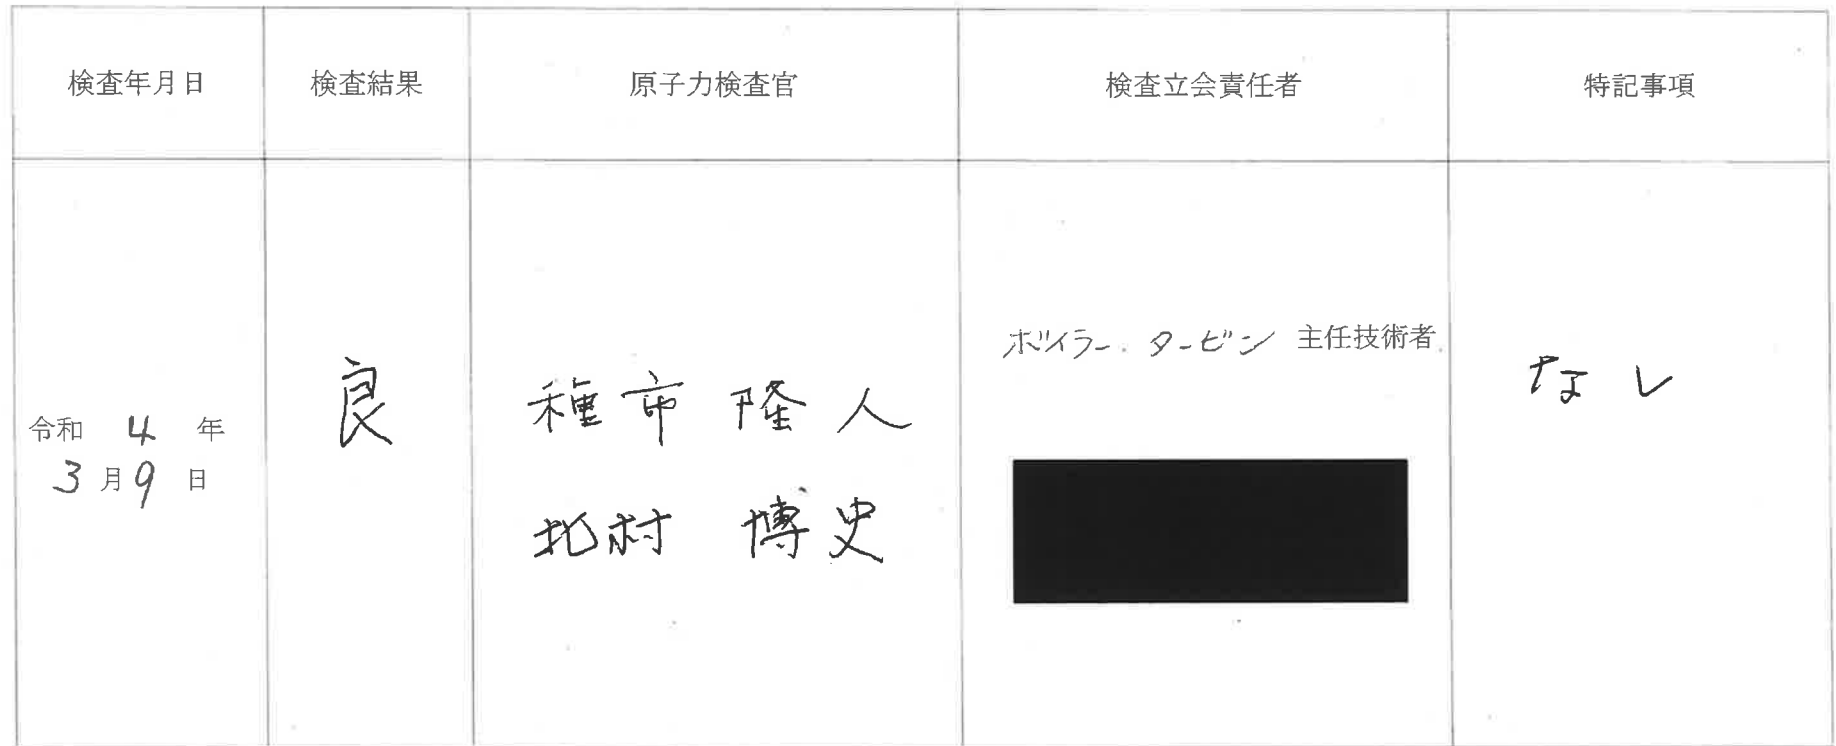 検査年月日 検査結果 原子力検査官 検査立会責任者 特記事項
令和 4 年
3 月 9 日
良
種市 隆人
北村 博史
ボイラー・タービン 主任技術者
なし